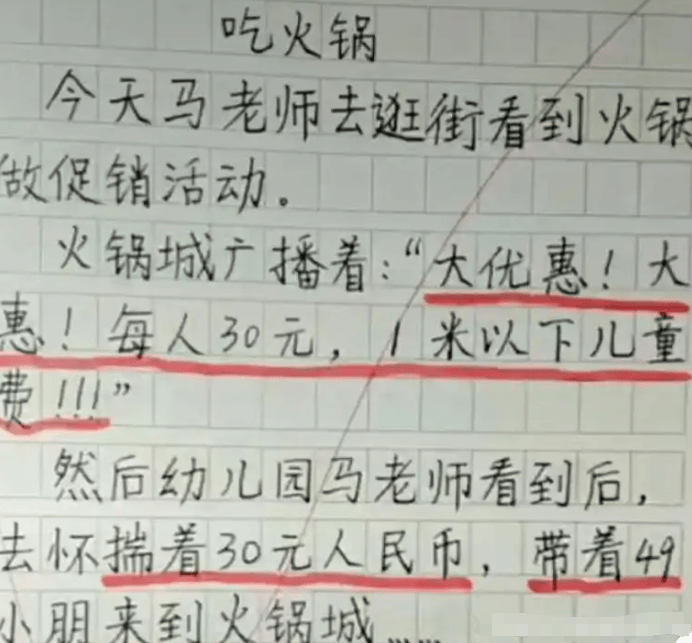 吃火锅
今天马老师去逛街看到火锅
做促销活动。
火锅城广播着:“大优惠!大
惠!每人30元,1米以下儿童
费!!!”
然后幼儿园马老师看到后,
去怀揣着30元人民币,带着49
小朋来到火锅城……